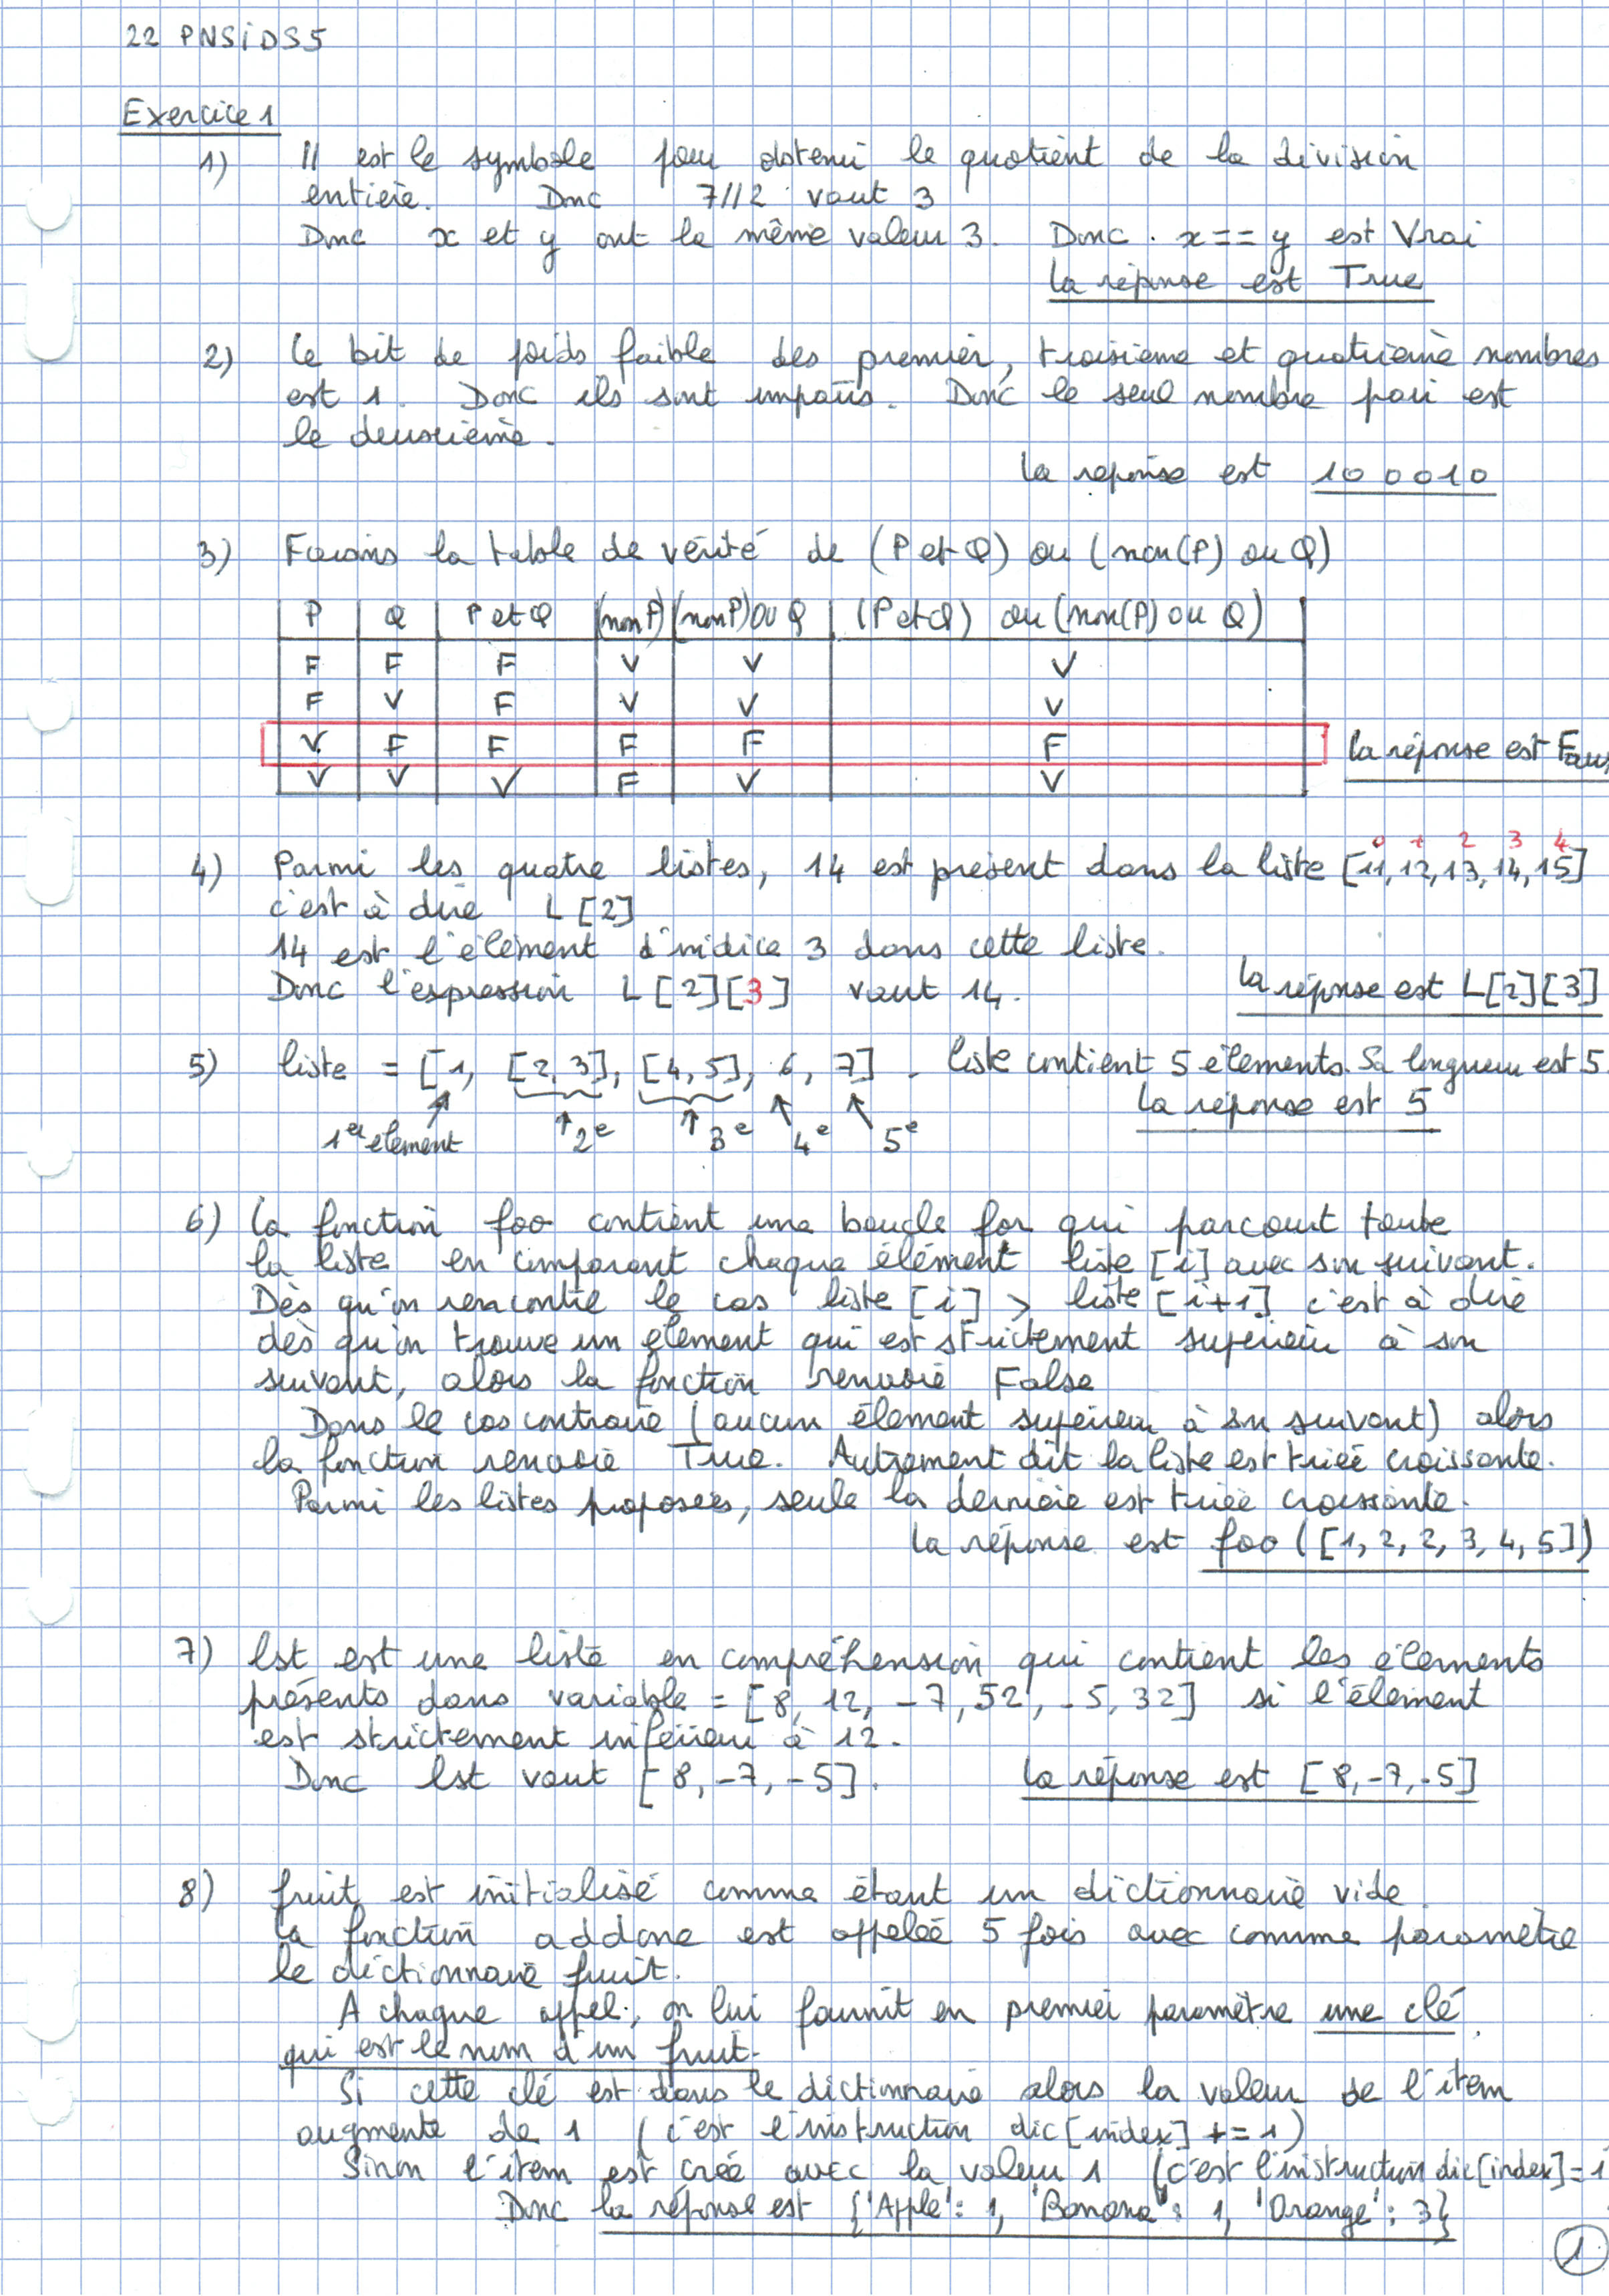 22 PNSIDS5
Exercice 1
1) // est le symbole pour obtenir le quotient de la division
entière. Donc 7//2 vaut 3
Donc x et y ont la même valeur 3. Donc x == y est Vrai
La réponse est True
2) Le bit de poids faible des premier, troisième et quatrième nombres
est 1. Donc ils sont impairs. Donc le seul nombre pair est
le deuxième.
La réponse est 100010
3) Faisons la table de vérité de (P et Q) ou (non(P) ou Q)
P Q P et Q (non P) (non P) OU Q (P et Q) ou (non(P) ou Q)
F F F V V V
F V F V V V
V F F F F F La réponse est Faux
V V V F V V
0 1 2 3 4
4) Parmi les quatre listes, 14 est présent dans la liste [11, 12, 13, 14, 15]
c'est à dire L[2]
14 est l'élément d'indice 3 dans cette liste.
Donc l'expression L[2][3] vaut 14. La réponse est L[2][3]
5) liste = [1, [2,3], [4,5], 6, 7]. liste contient 5 éléments. Sa longueur est 5.
La réponse est 5
1er élément 2e 3e 4e 5e
6) La fonction foo contient une boucle for qui parcourt toute
la liste en comparant chaque élément liste[i] avec son suivant.
Dès qu'on rencontre le cas liste[i] > liste[i+1] c'est à dire
dès qu'on trouve un élément qui est strictement supérieur à son
suivant, alors la fonction renvoie False
Dans le cas contraire (aucun élément supérieur à son suivant) alors
la fonction renvoie True. Autrement dit la liste est triée croissante.
Parmi les listes proposées, seule la dernière est triée croissante.
La réponse est foo([1, 2, 2, 3, 4, 5])
7) lst est une liste en compréhension qui contient les éléments
présents dans variable = [8, 12, -7, 52, -5, 32] si l'élément
est strictement inférieur à 12.
Donc lst vaut [8, -7, -5]. La réponse est [8, -7, -5]
8) fruit est initialisé comme étant un dictionnaire vide
La fonction addone est appelée 5 fois avec comme paramètre
le dictionnaire fruit.
A chaque appel, on lui fournit en premier paramètre une clé
qui est le nom d'un fruit.
Si cette clé est dans le dictionnaire alors la valeur de l'item
augmente de 1 (c'est l'instruction dic[index] += 1)
Sinon l'item est créé avec la valeur 1 (c'est l'instruction dic[index]=1
Donc la réponse est {'Apple': 1, 'Banana': 1, 'Orange': 3}
1